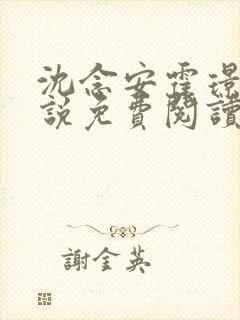 沈念安霆璟
說免費閱讀
謝金英